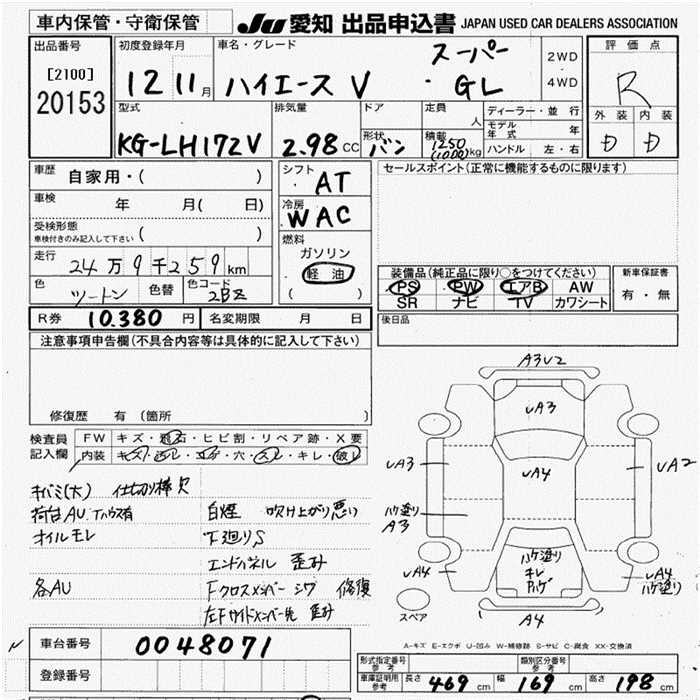 車内保管・守衛保管
JU 愛知 出品申込書 JAPAN USED CAR DEALERS ASSOCIATION
出品番号
[2100]
20153
初度登録年月
12 11月
車名・グレード
ハイエース V スーパー GL
2WD
・
4WD
評価点
R
外装 内装
D D
型式
KG-LH172V
排気量
2.98 CC
ドア
形状
バン
定員
人
積載
1250
(1000)kg
ディーラー・並行
モデル年式 年
ハンドル 左・右
車歴 自家用・( )
車検 年 月( 日)
受検形態
車検付きのみ記入して下さい ( )
走行 24万9千259km
色 ツートン 色替 色コード 2BZ
シフト AT
冷房 WAC
燃料
ガソリン
軽油
( )
セールスポイント(正常に機能するものに限ります)
装備品(純正品に限り○をつけてください)
PS PW エアB AW
SR ナビ TV カワシート
新車保証書
有・無
R券 10.380 円 名変期限 月 日
後日品
注意事項申告欄(不具合内容等は具体的に記入して下さい)
修復歴 有 (箇所 )
検査員記入欄
FW キズ・飛石・ヒビ割・リペア跡・X要
内装 キズ・汚レ・コゲ・穴・スレ・キレ・破レ
キバミ(大) 仕切り棒欠
荷台AU Tハウス有 白煙 吹け上がり悪い
オイルモレ 下廻りS
エンドパネル 歪み
各AU Fクロスメンバー シワ 修復
左Fサイドメンバー先 歪み
A3U2
UA3
UA3
UA4
UA2
ハケ塗り
A3
ハケ塗り
キレ
UA4
UA4
ハケ塗り
A4
スペア
A-キズ E-エクボ U-凹み W-補修跡 S-サビ C-腐食 XX-交換済
車台番号 0048071
登録番号
形式指定番号 参考
類別区分番号 参考
車庫証明用 参考 長さ 469 cm 幅 169 cm 高さ 198 cm